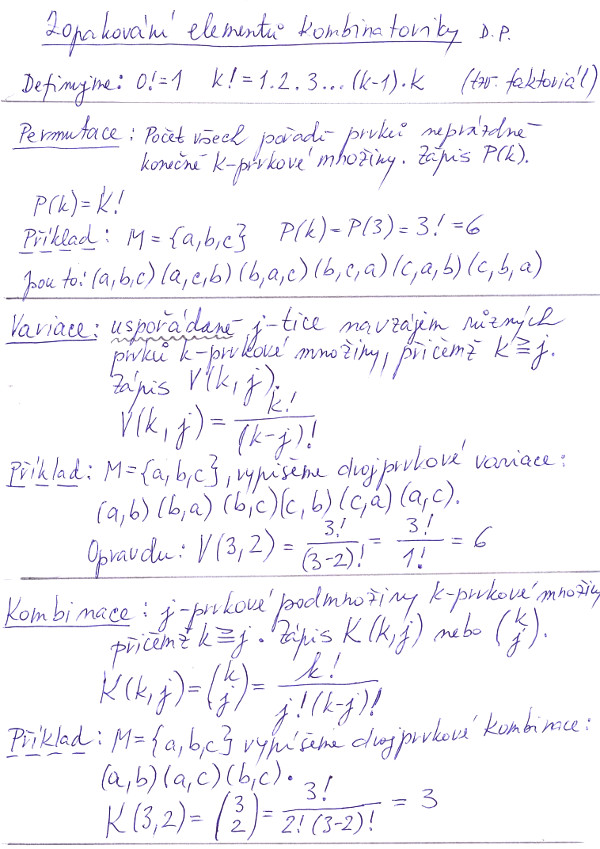 Zopakování elementů kombinatoriky D.P.
Definujme: 0! = 1 k! = 1.2.3...(k-1).k (tzv. faktoriál)
Permutace: Počet všech pořadí prvků neprázdné
konečné k-prvkové množiny. Zápis P(k).
P(k) = k!
Příklad: M = {a,b,c} P(k) = P(3) = 3! = 6
Jsou to: (a,b,c) (a,c,b) (b,a,c) (b,c,a) (c,a,b) (c,b,a)
Variace: uspořádané j-tice navzájem různých
prvků k-prvkové množiny, přičemž k ≧ j.
Zápis V(k,j).
V(k,j) = k! / (k-j)!
Příklad: M = {a,b,c}, vypíšeme dvojprvkové variace:
(a,b) (b,a) (b,c) (c,b) (c,a) (a,c).
Opravdu: V(3,2) = 3! / (3-2)! = 3! / 1! = 6
Kombinace: j-prvkové podmnožiny k-prvkové množiny
přičemž k ≧ j. Zápis K(k,j) nebo (k j).
K(k,j) = (k j) = k! / j!(k-j)!
Příklad: M = {a,b,c} vypíšeme dvojprvkové kombinace:
(a,b) (a,c) (b,c).
K(3,2) = (3 2) = 3! / 2!(3-2)! = 3